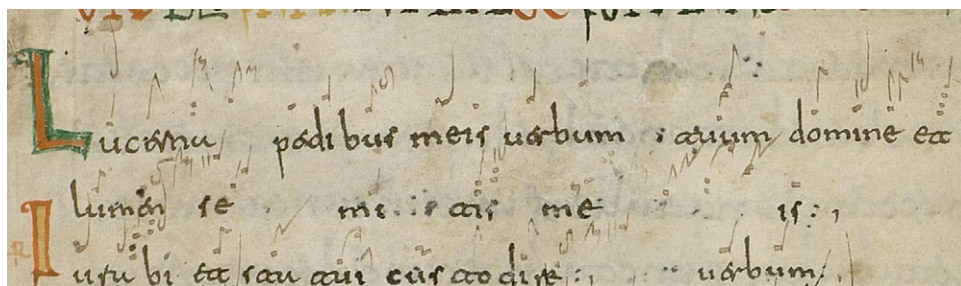 Lucerna pedibus meis uerbum : tuum domine et
lumen se mi tis me is :,
Iurabi et statui custodire :, uerbum